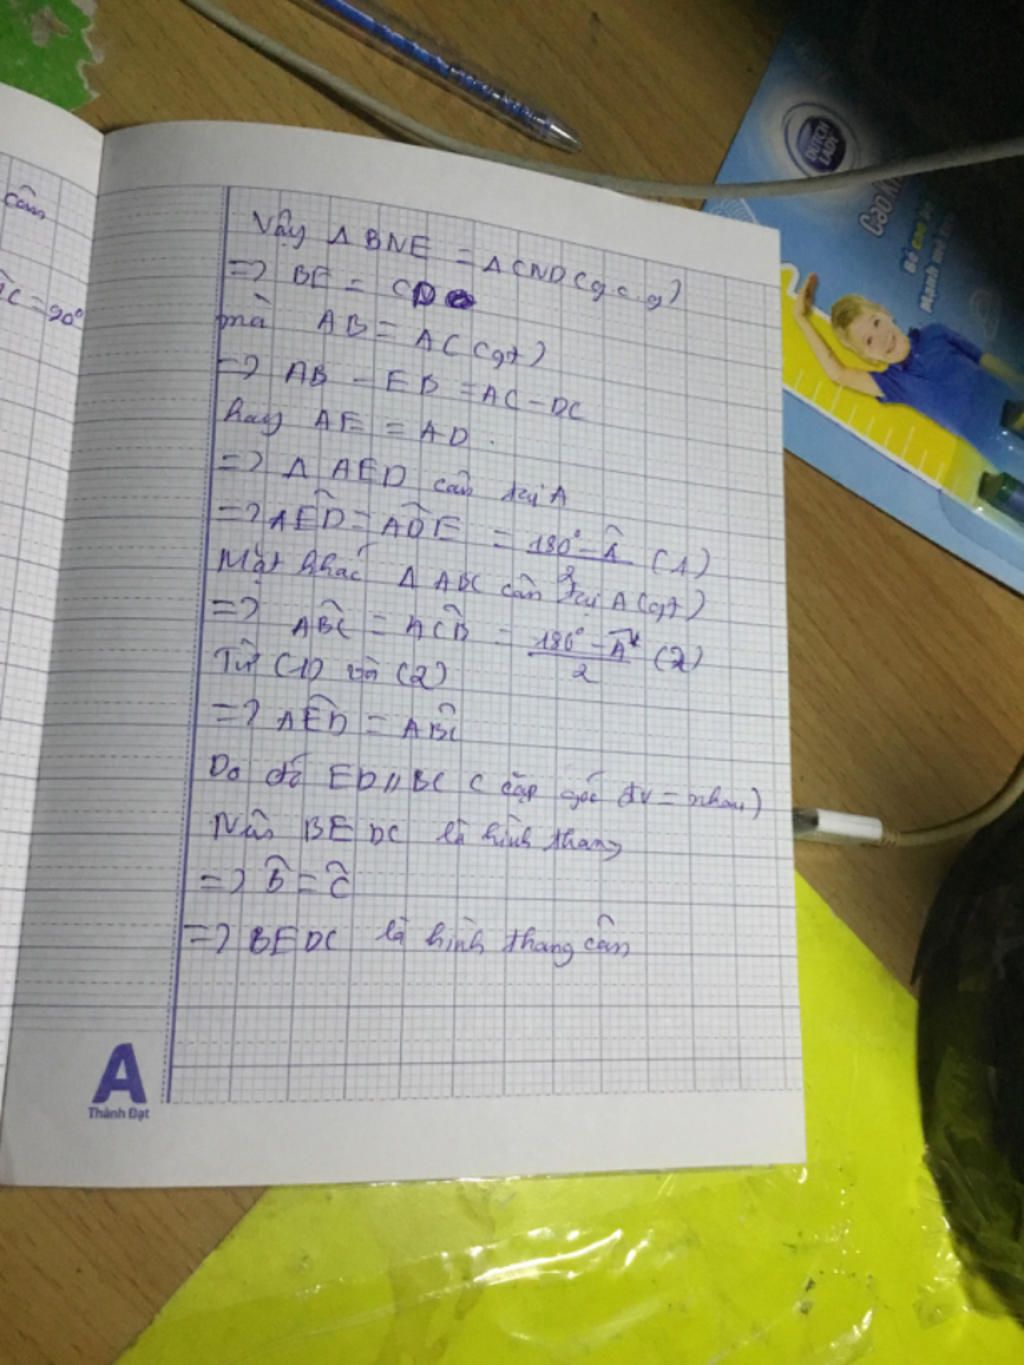 cân
C = 90°
Vậy Δ BNE = Δ CND (g.c.g)
=> BE = CD
mà AB = AC (gt)
=> AB - EB = AC - DC
hay AE = AD.
=> Δ AED cân tại A
=> AÊD = AD̂E = 180° - Â / 2 (1)
Mặt khác Δ ABC cân tại A (gt)
=> AB̂C = AĈB = 180° - Â / 2 (2)
Từ (1) và (2)
=> AÊD = AB̂C
Do đó ED // BC ( cặp góc đv = nhau)
Nên BEDC là hình thang
=> B̂ = Ĉ
=> BEDC là hình thang cân
A
Thành Đạt
DUTCH LADY
Bé cao lớn
Mạnh mẽ